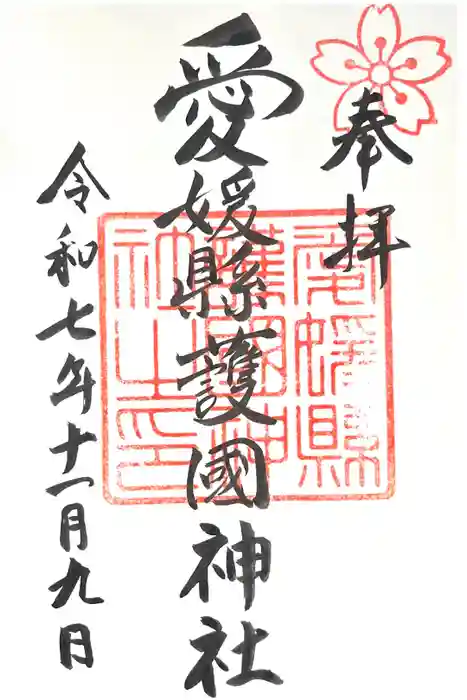 奉拝
愛媛縣護國神社
愛媛縣護國神社之印
令和七年十一月九日